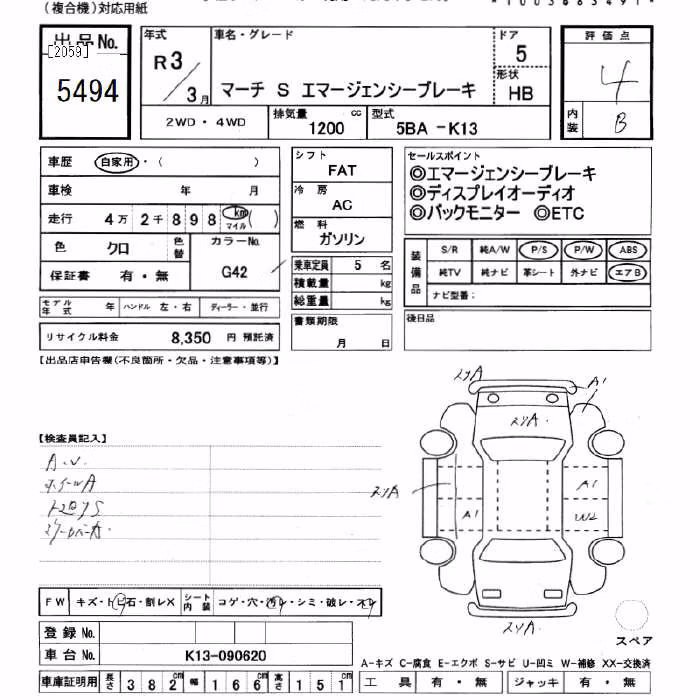 (複合機)対応用紙
出品No.
[2059]
5494
年式
R3/3月
車名・グレード
マーチ S エマージェンシーブレーキ
ドア
5
形状
HB
評価点
4
内装
B
2WD・4WD
排気量
1200 cc
型式
5BA -K13
車歴 自家用・( )
車検 年 月
走行 4万2千898 km マイル ( )
色 クロ 色替
カラーNo.
G42
保証書 有・無
モデル年式 年 ハンドル 左・右 ディーラー・並行
リサイクル料金 8,350 円 預託済
シフト
FAT
冷房
AC
燃料
ガソリン
乗車定員 5 名
積載量 kg
総重量 kg
書類期限
月 日
セールスポイント
◎エマージェンシーブレーキ
◎ディスプレイオーディオ
◎バックモニター ◎ETC
装備品
S/R 純A/W P/S P/W ABS
純TV 純ナビ 革シート 外ナビ エアB
ナビ型番:
後日品
【出品店申告欄(不良箇所・欠品・注意事項等)】
【検査員記入】
A.V.
ホイールA
A1
A1
A1
W2
FW キズ・トビ石・割レX シート内装 コゲ・穴・汚レ・シミ・破レ・スレ
登録No.
車台No. K13-090620
車庫証明用 長さ 382cm 幅 166cm 高さ 151cm
スペア
A-キズ C-腐食 E-エクボ S-サビ U-凹ミ W-補修 XX-交換済
工具 有・無 ジャッキ 有・無